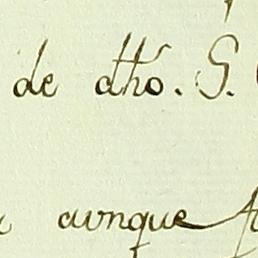 de dho. S.
aunque